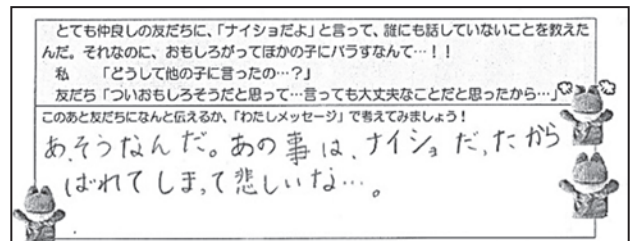 とても仲良しの友だちに、「ナイショだよ」と言って、誰にも話していないことを教えた
んだ。それなのに、おもしろがってほかの子にバラすなんて…！！
私　「どうして他の子に言ったの…？」
友だち「ついおもしろそうだと思って…言っても大丈夫なことだと思ったから…」
このあと友だちになんと伝えるか、「わたしメッセージ」で考えてみましょう！
あ、そうなんだ。あの事は、ナイショだったから
ばれてしまって悲しいな…。